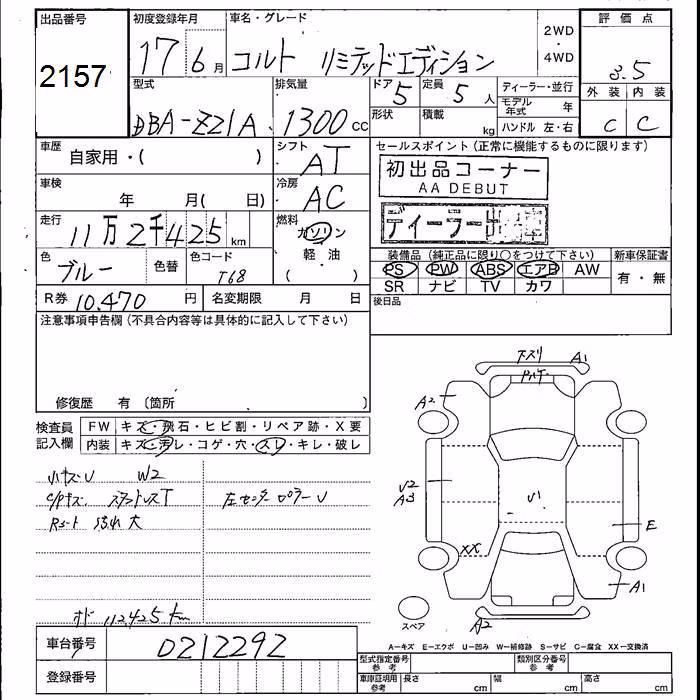 出品番号
2157
初度登録年月
17 6月
車名・グレード
コルト リミテッドエディション
2WD
・
4WD
評価点
3.5
外装 内装
C C
型式
DBA-Z21A
排気量
1300cc
ドア 定員
5 5人
形状 積載
kg
ディーラー・並行
モデル年式 年
ハンドル 左・右
車歴
自家用・( )
シフト
AT
車検
年 月( 日)
冷房
AC
走行
11万2千425km
燃料
ガソリン
軽・油
( )
色
ブルー
色替
色コード
T68
R券 10.470円
名変期限 月 日
セールスポイント(正常に機能するものに限ります)
初出品コーナー
AA DEBUT
ディーラー出
装備品(純正品に限り○をつけて下さい)
PS PW ABS エアB AW
SR ナビ TV カワ
新車保証書
有・無
後日品
注意事項申告欄(不具合内容等は具体的に記入して下さい)
修復歴 有 〔箇所 〕
検査員
記入欄
FW キズ・飛石・ヒビ割・リペア跡・X要
内装 キズ・汚レ・コゲ・穴・スレ・キレ・破レ
小キズU W2
スタッドレスT
左センターピラーU
Rシート 汚れ大
112425km
車台番号 0212292
登録番号
A1
A2
U2
A3
U1
E
XX
A1
A2
スペア
A−キズ E−エクボ U−凹み W−補修跡 S−サビ C−腐食 XX−交換済
型式指定番号
参考
類別区分番号
参考
車庫証明用
参考
長さ cm
幅 cm
高さ cm